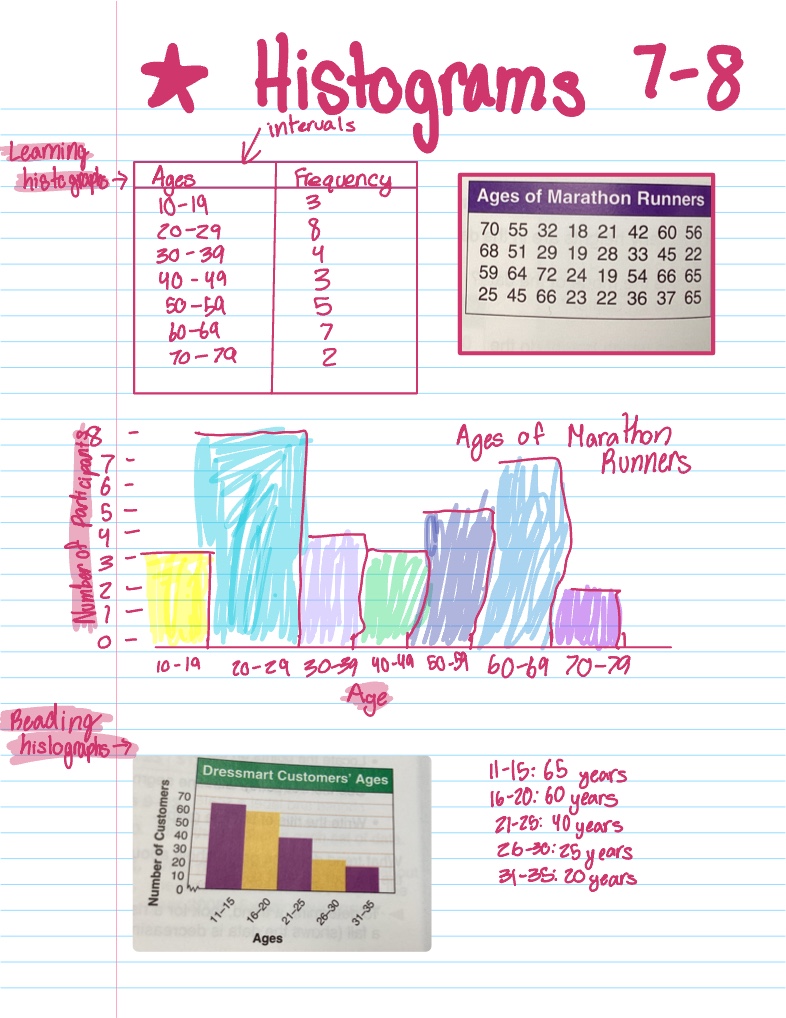 ★ Histograms 7-8
intervals
Learning
histographs →
Ages Frequency
10-19 3
20-29 8
30-39 4
40-49 3
50-59 5
60-69 7
70-79 2
Ages of Marathon Runners
70 55 32 18 21 42 60 56
68 51 29 19 28 33 45 22
59 64 72 24 19 54 66 65
25 45 66 23 22 36 37 65
Ages of Marathon
Runners
Number of Participants
8
7
6
5
4
3
2
1
0
10-19 20-29 30-39 40-49 50-59 60-69 70-79
Age
Reading
histographs →
Dressmart Customers' Ages
Number of Customers
70
60
50
40
30
20
10
0
11–15 16–20 21–25 26–30 31–35
Ages
11-15: 65 years
16-20: 60 years
21-25: 40 years
26-30: 25 years
31-35: 20 years